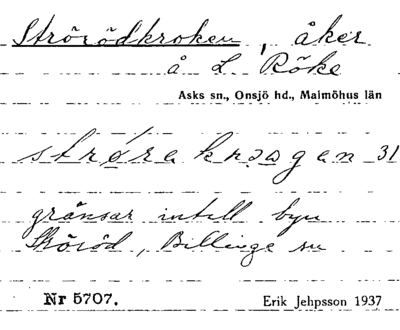 Strörödkroken, åker
å L. Röke
Asks sn., Onsjö hd., Malmöhus län
31
gränsar intill byn
Ströröd, Billinge sn
Nr 5707.
Erik Jehpsson 1937